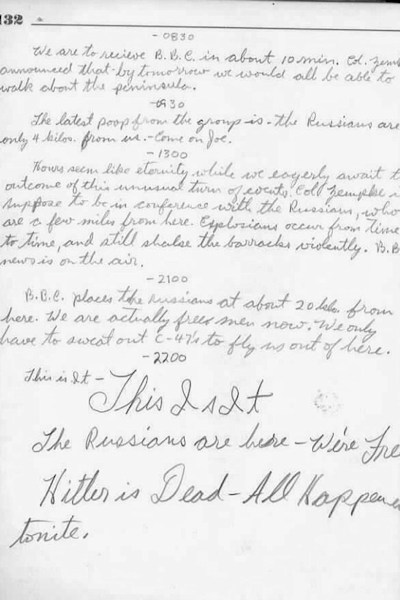 132
- 0830
We are to recieve B.B.C. in about 10 min. Col. Zemk
announced that by tomorrow we would all be able to
walk about the peninsula.
- 0930
The latest poop from the group is - the Russians are
only 4 kilos. from us. - Come on Joe.
- 1300
Hours seem like eternity while we eagerly await t
outcome of this unusual turn of events. Col. Zempke i
suppose to be in conference with the Russians, who
are a few miles from here. Explosians occur from time
to time, and still shake the barracks violently. B.B
news is on the air.
- 2100
B.B.C. places the Russians at about 20 kilos from
here. We are actually free men now. We only
have to sweat out C-47's to fly us out of here.
- 2200
This is It -
This Is It
The Russians are here - We're Fre
Hitler is Dead - All Happene
tonite.